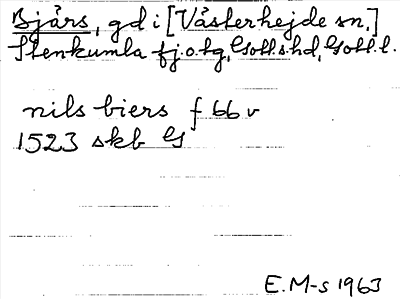 Bjärs, gd i [Västerhejde sn,]
Stenkumla fj.o.tg, Gotl.s.hd, Gotl.l.
nils biers f 66 v
1523 skb G
E.M-s 1963